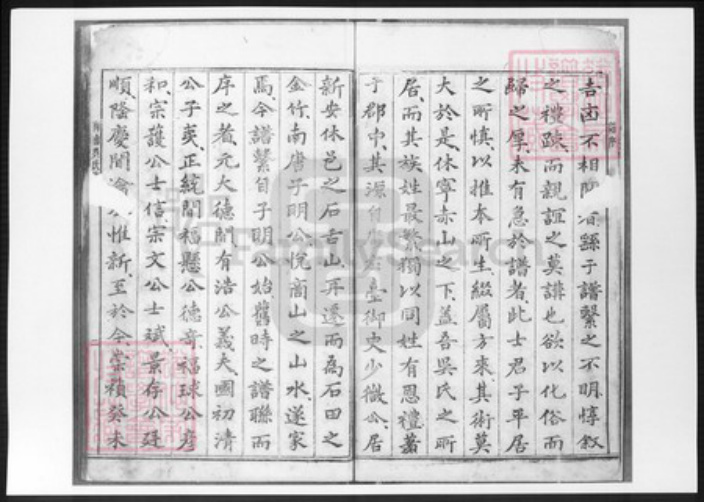 吉凶不相 繇于譜繫之不明惇敘
之禮踈而親誼之莫講也欲以化俗而
歸之厚未有急於譜者此士君子平居
之所慎以推本所生綴屬方來其術莫
大於是休寧赤山之下蓋吾吳氏之所
居而其族姓最繁獨以同姓有恩禮著
于郡中其源自 臺御史少微公居
新安休邑之石舌山再遷而為石田之
金竹南唐子明公悅商山之山水遂家
焉今譜繫自子明公始舊時之譜聯而
序之者元大德間有浩公義夫國初清
公子奭正統間福懸公德奇福球公彥
和宗護公士信宗文公士斌景存公廷
順隆慶間 惟新至於今崇禎癸未
FamilySearch